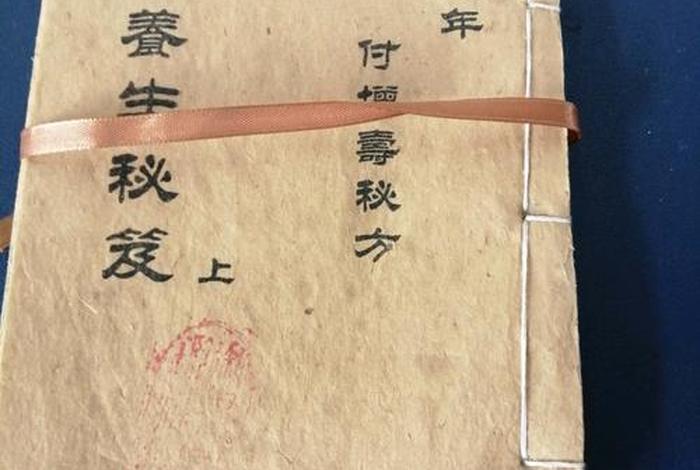 年
付增壽秘方
養生秘笈 上